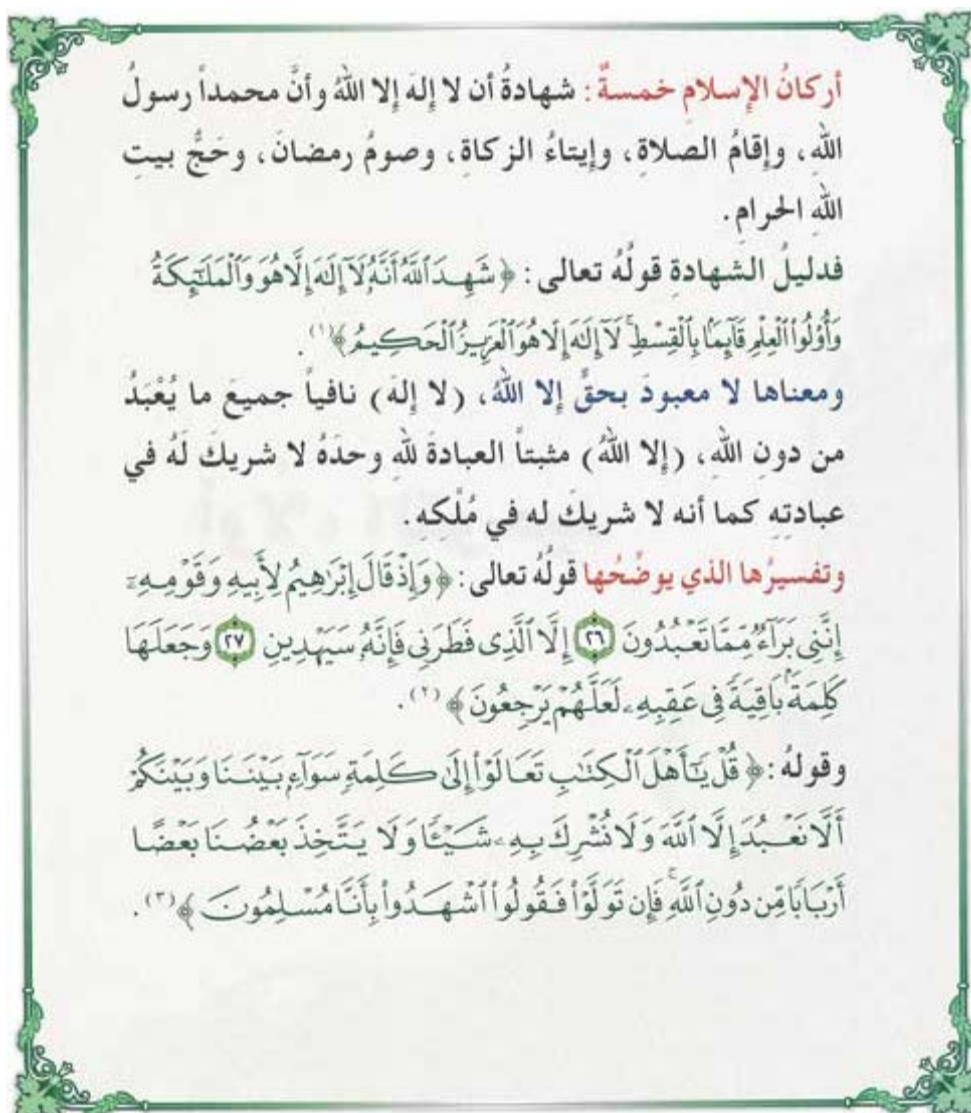 أركانُ الإِسلامِ خمسةٌ : شهادةُ أن لا إِلهَ إِلا اللهُ وأنَّ محمداً رسولُ
اللهِ، وإِقامُ الصلاةِ، وإِيتاءُ الزكاةِ، وصومُ رمضانَ، وحَجُّ بيتِ
اللهِ الحرامِ.
فدليلُ الشهادةِ قولُهُ تعالى : ﴿شَهِدَ ٱللَّهُ أَنَّهُۥ لَآ إِلَٰهَ إِلَّا هُوَ وَٱلْمَلَٰٓئِكَةُ
وَأُو۟لُوا۟ ٱلْعِلْمِ قَآئِمًۢا بِٱلْقِسْطِ ۚ لَآ إِلَٰهَ إِلَّا هُوَ ٱلْعَزِيزُ ٱلْحَكِيمُ﴾(١).
ومعناها لا معبودَ بحقٍّ إِلا اللهُ، (لا إِلهَ) نافياً جميعَ ما يُعْبَدُ
من دونِ اللهِ، (إِلا اللهُ) مثبتاً العبادةَ للهِ وحدَهُ لا شريكَ لَهُ في
عبادتِهِ كما أنه لا شريكَ له في مُلْكِهِ.
وتفسيرُها الذي يوضِّحُها قولُهُ تعالى : ﴿وَإِذْ قَالَ إِبْرَٰهِيمُ لِأَبِيهِ وَقَوْمِهِۦٓ
إِنَّنِى بَرَآءٌ مِّمَّا تَعْبُدُونَ ٢٦ إِلَّا ٱلَّذِى فَطَرَنِى فَإِنَّهُۥ سَيَهْدِينِ ٢٧ وَجَعَلَهَا
كَلِمَةًۢ بَاقِيَةً فِى عَقِبِهِۦ لَعَلَّهُمْ يَرْجِعُونَ﴾(٢).
وقولهُ : ﴿قُلْ يَٰٓأَهْلَ ٱلْكِتَٰبِ تَعَالَوْا۟ إِلَىٰ كَلِمَةٍ سَوَآءٍۭ بَيْنَنَا وَبَيْنَكُمْ
أَلَّا نَعْبُدَ إِلَّا ٱللَّهَ وَلَا نُشْرِكَ بِهِۦ شَيْـًٔا وَلَا يَتَّخِذَ بَعْضُنَا بَعْضًا
أَرْبَابًا مِّن دُونِ ٱللَّهِ ۚ فَإِن تَوَلَّوْا۟ فَقُولُوا۟ ٱشْهَدُوا۟ بِأَنَّا مُسْلِمُونَ﴾(٣).